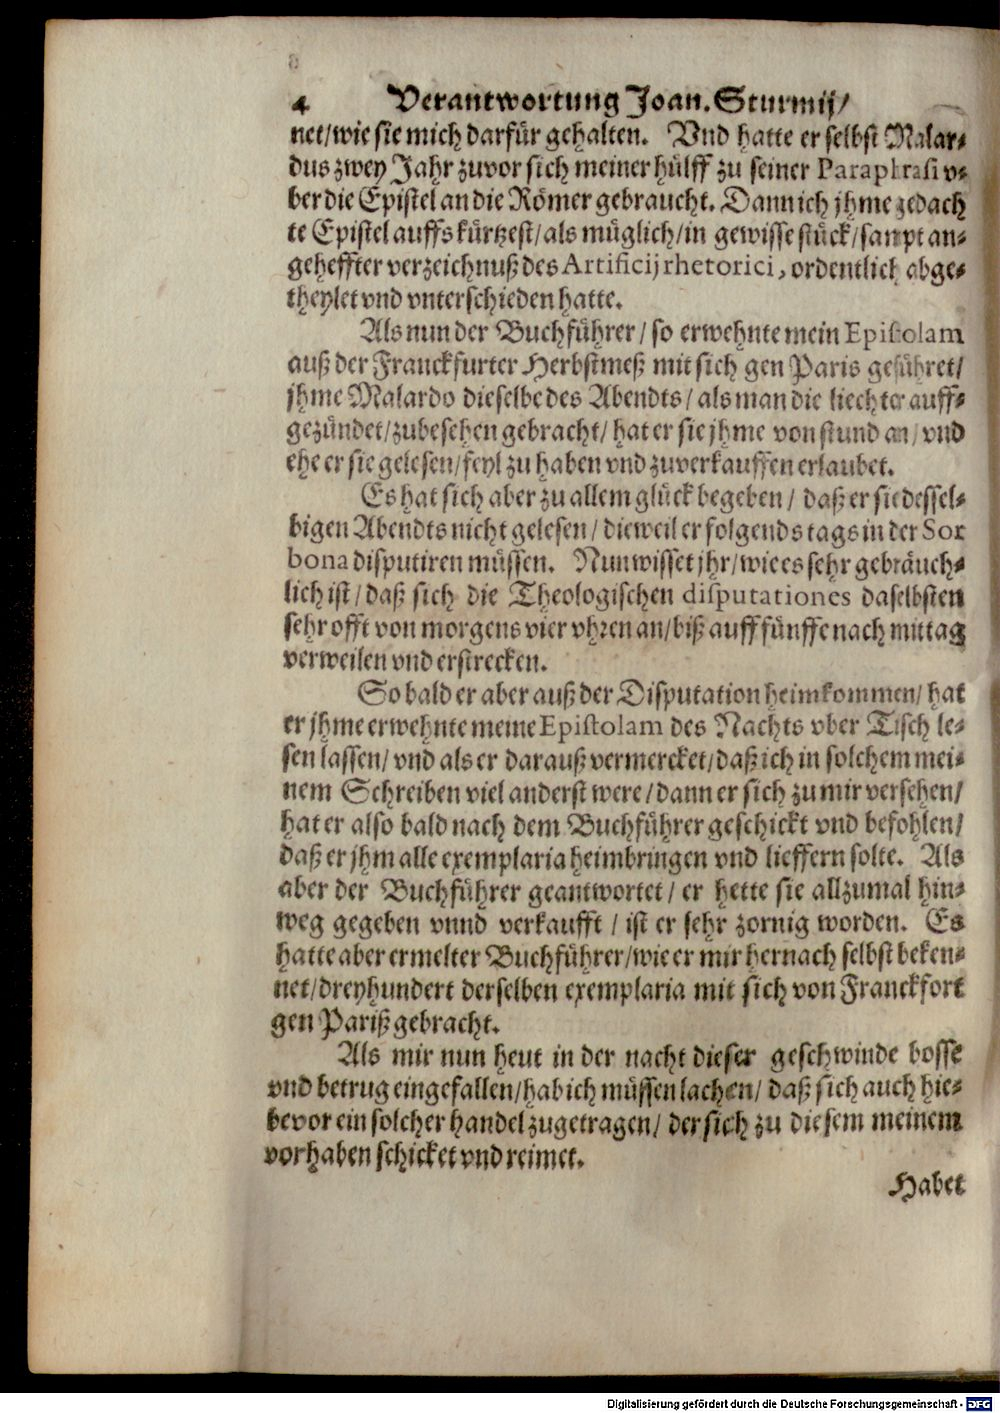 4 Verantwortung Joan. Sturmij/
net/wie sie mich darfür gehalten. Vnd hatte er selbst Malar-
dus zwey Jahr zuvor sich meiner hülff zu seiner Paraphrasi v-
ber die Epistel an die Römer gebraucht. Dann ich jhme gedach
te Epistel auffs kürtzest/als müglich/in gewisse stück/sampt an-
geheffter verzeichnuß des Artificij rhetorici, ordentlich abge-
theylet vnd vnterschieden hatte.
Als nun der Buchführer/so erwehnte mein Epistolam
auß der Franckfurter Herbstmeß mit sich gen Paris geführet/
jhme Malardo dieselbe des Abendts/als man die liechter auff-
gezündet/zubesehen gebracht/hat er sie jhme von stund an/vnd
ehe er sie gelesen/feyl zu haben vnd zuverkauffen erlaubet.
Es hat sich aber zu allem glück begeben/daß er sie dessel-
bigen Abendts nicht gelesen/dieweil er folgends tags in der Sor
bona disputiren müssen. Nun wisset jhr/wie es sehr gebräuch-
lich ist/daß sich die Theologischen disputationes daselbsten
sehr offt von morgens vier vhren an/biß auff fünffe nach mittag
verweilen vnd erstrecken.
So bald er aber auß der Disputation heimkommen/hat
er jhme erwehnte meine Epistolam des Nachts vber Tisch le-
sen lassen/vnd als er darauß vermercket/daß ich in solchem mei-
nem Schreiben viel anderst were/dann er sich zu mir versehen/
hat er also bald nach dem Buchführer geschickt vnd befohlen/
daß er jhm alle exemplaria heimbringen vnd lieffern solte. Als
aber der Buchführer geantwortet/er hette sie allzumal hin-
weg gegeben vnnd verkaufft/ist er sehr zornig worden. Es
hatte aber ermelter Buchführer/wie er mir hernach selbst beken-
net/dreyhundert derselben exemplaria mit sich von Franckfort
gen Pariß gebracht.
Als mir nun heut in der nacht dieser geschwinde bosse
vnd betrug eingefallen/hab ich müssen lachen/daß sich auch hie-
bevor ein solcher handel zugetragen/der sich zu diesem meinem
vorhaben schicket vnd reimet.
Habet
Digitalisierung gefördert durch die Deutsche Forschungsgemeinschaft - DFG